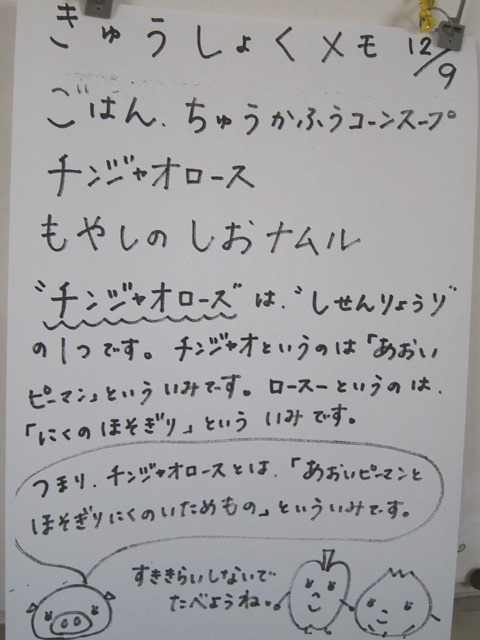 きゅうしょくメモ 12/9
ごはん、ちゅうかふうコーンスープ
チンジャオロース
もやしのしおナムル
"チンジャオロース"は、"しせんりょうり"
の1つです。チンジャオというのは「あおい
ピーマン」といういみです。ロースーというのは、
「にくのほそぎり」という いみです。
つまり、チンジャオロースとは、「あおいピーマンと
ほそぎりにくのいためもの」といういみです。
すききらいしないで
たべようね。